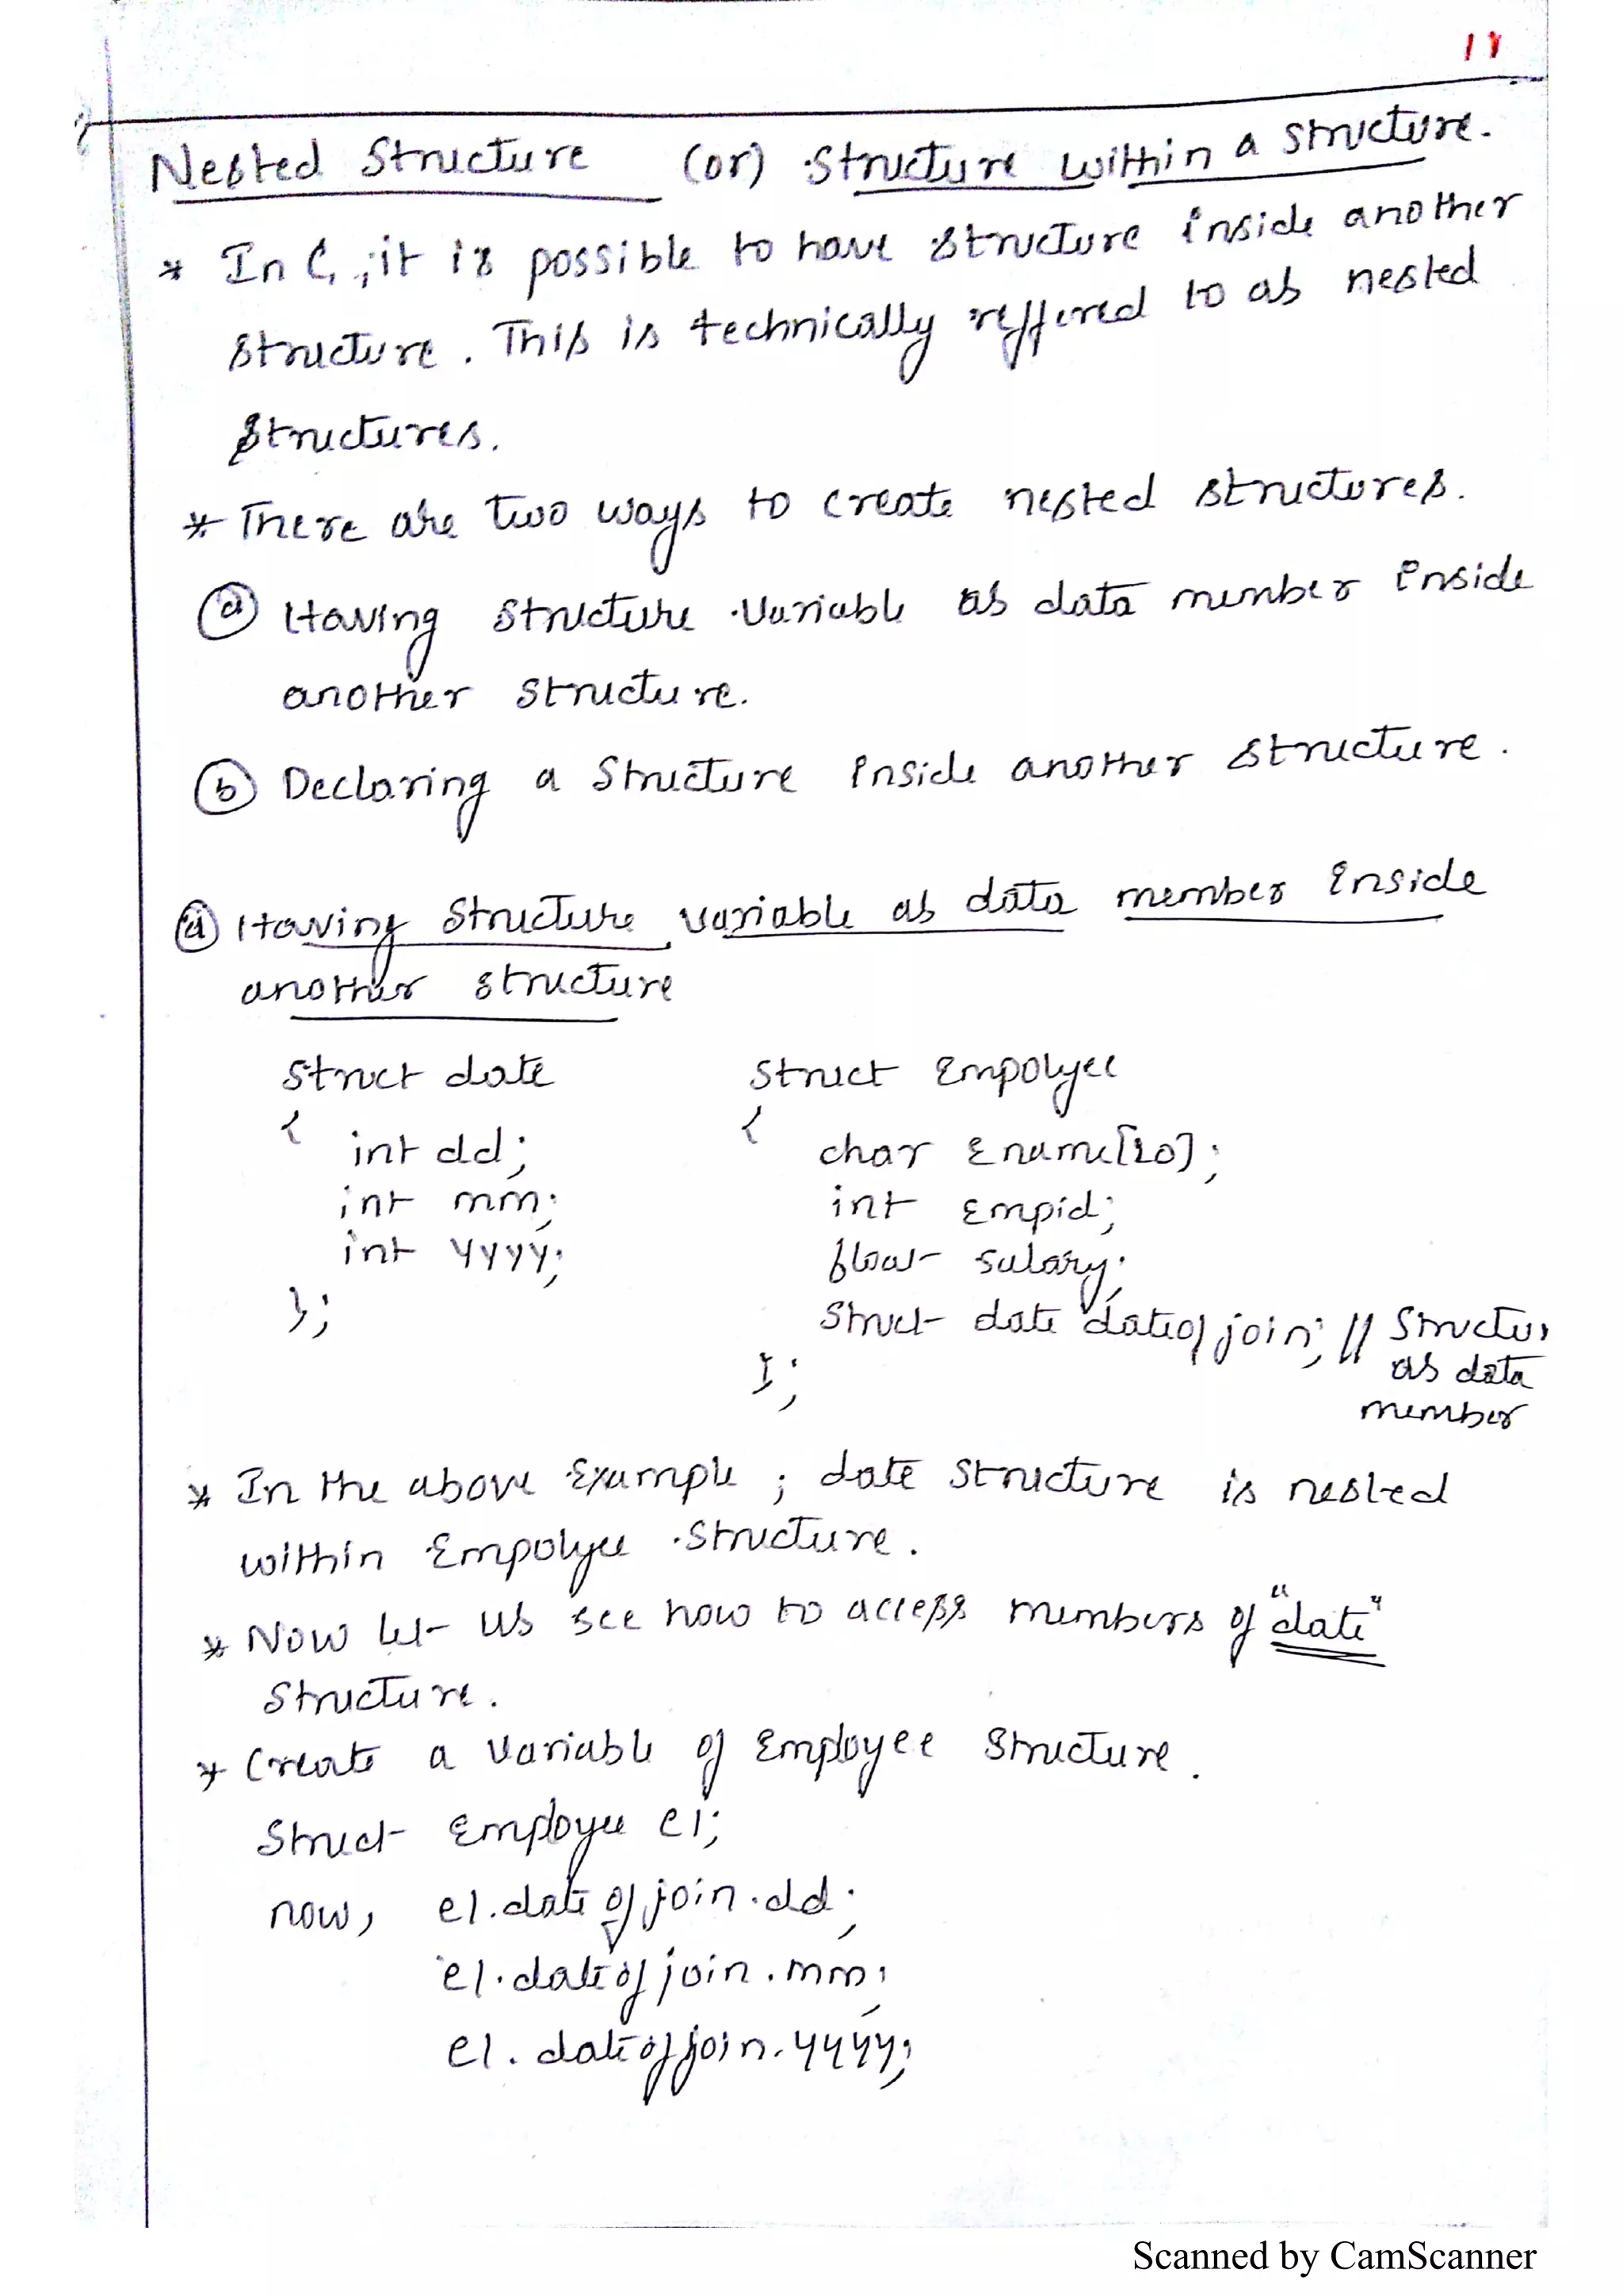 Nested Structure (or) Structure within a structure.
* In C, it is possible to have structure inside another
structure. This is technically reffered to as nested
structures.
* There are two ways to create nested structures.
(a) Having structure variable as data member inside
another structure.
(b) Declaring a structure inside another structure.
(a) Having structure variable as data member inside
another structure
struct date
{
int dd;
int mm;
int yyyy;
};
struct Empolyee
{
char Ename[20];
int Empid;
float salary;
struct date dateofjoin; // Structu
as data
member
};
* In the above Example ; date structure is nested
within Empolyee structure.
* Now let us see how to access members of "date"
structure.
* Create a variable of Employee structure.
struct Employee e1;
now, e1.dateofjoin.dd;
e1.dateofjoin.mm;
e1.dateofjoin.yyyy;
Scanned by CamScanner